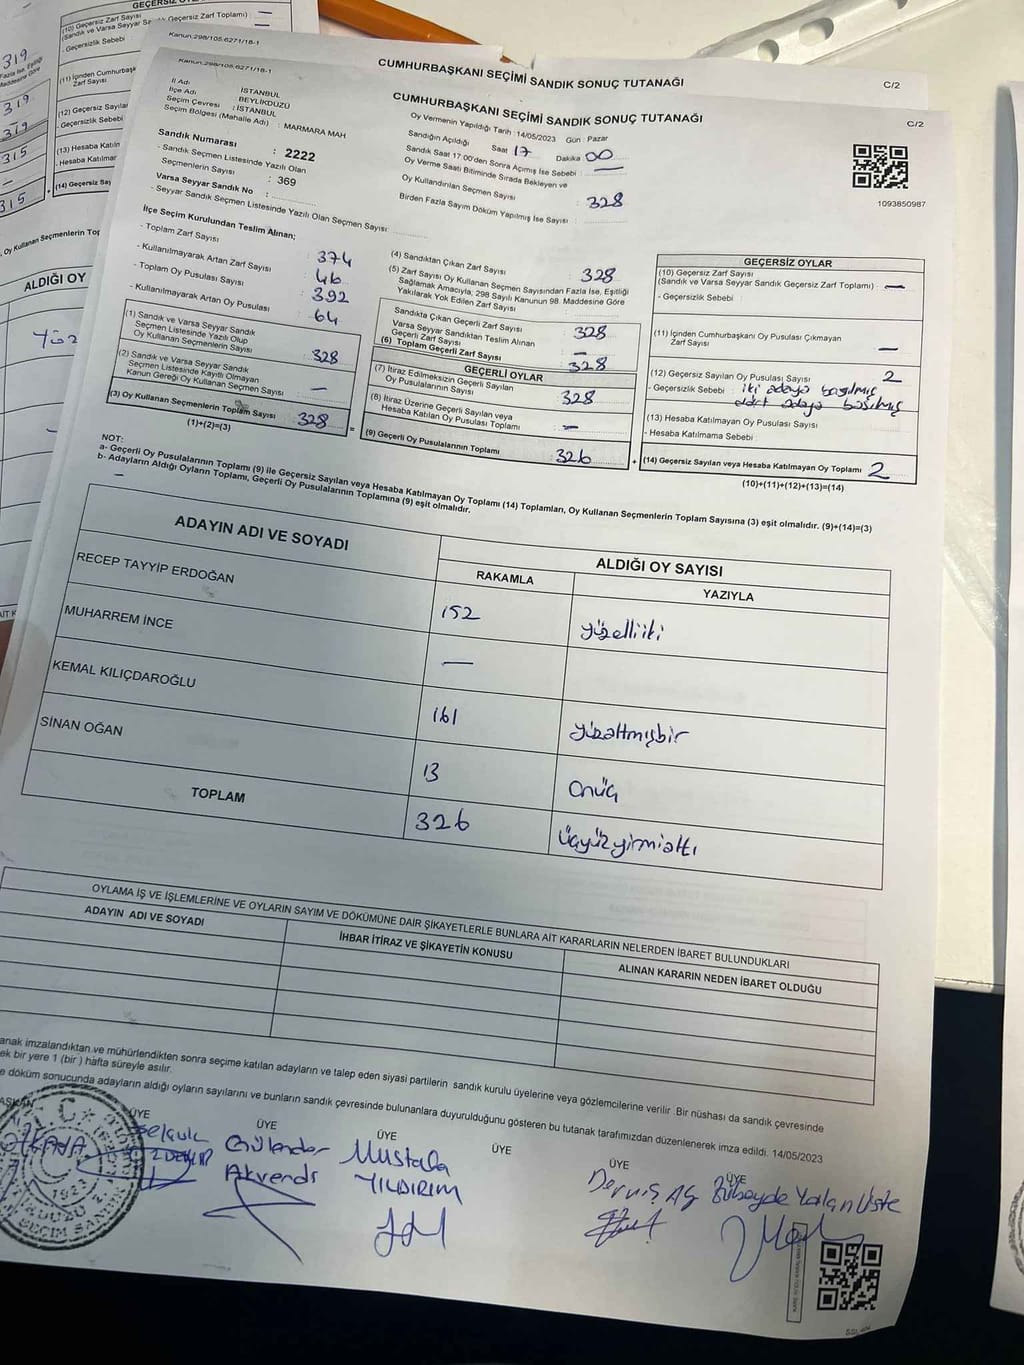 GEÇERSİZ OY
(10) Geçersiz Zarf Sayısı
(Sandık ve Varsa Seyyar Geçersiz Zarf Toplamı) —
- Geçersizlik Sebebi
(11) İçinden Cumhurbaşk
Zarf Sayısı
(12) Geçersiz Sayılan
- Geçersizlik Sebebi
(13) Hesaba Katılm
- Hesaba Katılmam
(14) Geçersiz Say
319
319
319
315
315
Oy Kullanan Seçmenlerin Top
ALDIĞI OY
Kanun:298/105.6271/18-1
CUMHURBAŞKANI SEÇİMİ SANDIK SONUÇ TUTANAĞI
C/2
Kanun:298/105.6271/18-1
CUMHURBAŞKANI SEÇİMİ SANDIK SONUÇ TUTANAĞI
C/2
İl Adı : İSTANBUL
İlçe Adı : BEYLİKDÜZÜ
Seçim Çevresi : İSTANBUL
Seçim Bölgesi (Mahalle Adı) : MARMARA MAH
Sandık Numarası : 2222
- Sandık Seçmen Listesinde Yazılı Olan
Seçmenlerin Sayısı : 369
Varsa Seyyar Sandık No :
- Seyyar Sandık Seçmen Listesinde Yazılı Olan Seçmen Sayısı:
Oy Vermenin Yapıldığı Tarih : 14/05/2023 Gün : Pazar
Sandığın Açıldığı Saat 17 Dakika 00
Sandık Saat 17 00'den Sonra Açımış İse Sebebi : —
Oy Verme Saati Bitiminde Sırada Bekleyen ve
Oy Kullandırılan Seçmen Sayısı : 328
Birden Fazla Sayım Döküm Yapılmış İse Sayısı :
1093850987
İlçe Seçim Kurulundan Teslim Alınan;
- Toplam Zarf Sayısı : 374
- Kullanılmayarak Artan Zarf Sayısı : 46
- Toplam Oy Pusulası Sayısı : 392
- Kullanılmayarak Artan Oy Pusulası : 64
(1) Sandık ve Varsa Seyyar Sandık
Seçmen Listesinde Yazılı Olup
Oy Kullanan Seçmenlerin Sayısı : 328
(2) Sandık ve Varsa Seyyar Sandık
Seçmen Listesinde Kayıtlı Olmayan
Kanun Gereği Oy Kullanan Seçmen Sayısı : —
(3) Oy Kullanan Seçmenlerin Toplam Sayısı : 328
(1)+(2)=(3)
(4) Sandıktan Çıkan Zarf Sayısı : 328
(5) Zarf Sayısı Oy Kullanan Seçmen Sayısından Fazla İse, Eşitliği
Sağlamak Amacıyla, 298 Sayılı Kanunun 98. Maddesine Göre
Yakılarak Yok Edilen Zarf Sayısı :
Sandıkta Çıkan Geçerli Zarf Sayısı : 328
Varsa Seyyar Sandıktan Teslim Alınan
Geçerli Zarf Sayısı : —
(6) Toplam Geçerli Zarf Sayısı : 328
GEÇERLİ OYLAR
(7) İtiraz Edilmeksizin Geçerli Sayılan
Oy Pusulalarının Sayısı : 328
(8) İtiraz Üzerine Geçerli Sayılan veya
Hesaba Katılan Oy Pusulası Toplamı : —
(9) Geçerli Oy Pusulalarının Toplamı : 326
GEÇERSİZ OYLAR
(10) Geçersiz Zarf Sayısı
(Sandık ve Varsa Seyyar Sandık Geçersiz Zarf Toplamı) : —
- Geçersizlik Sebebi :
(11) İçinden Cumhurbaşkanı Oy Pusulası Çıkmayan
Zarf Sayısı : —
(12) Geçersiz Sayılan Oy Pusulası Sayısı : 2
- Geçersizlik Sebebi : iki adaya basılmış
dört adaya basılmış
(13) Hesaba Katılmayan Oy Pusulası Sayısı :
- Hesaba Katılmama Sebebi :
(14) Geçersiz Sayılan veya Hesaba Katılmayan Oy Toplamı : 2
(10)+(11)+(12)+(13)=(14)
NOT:
a- Geçerli Oy Pusulalarının Toplamı (9) ile Geçersiz Sayılan veya Hesaba Katılmayan Oy Toplamı (14) Toplamları, Oy Kullanan Seçmenlerin Toplam Sayısına (3) eşit olmalıdır. (9)+(14)=(3)
b- Adayların Aldığı Oyların Toplamı, Geçerli Oy Pusulalarının Toplamına (9) eşit olmalıdır.
ADAYIN ADI VE SOYADI
ALDIĞI OY SAYISI
RAKAMLA YAZIYLA
RECEP TAYYİP ERDOĞAN 152 yüzelliiki
MUHARREM İNCE —
KEMAL KILIÇDAROĞLU 161 yüzaltmışbir
SİNAN OĞAN 13 onüç
TOPLAM 326 üçyüzyirmialtı
OYLAMA İŞ VE İŞLEMLERİNE VE OYLARIN SAYIM VE DÖKÜMÜNE DAİR ŞİKAYETLERLE BUNLARA AİT KARARLARIN NELERDEN İBARET BULUNDUKLARI
ADAYIN ADI VE SOYADI
İHBAR İTİRAZ VE ŞİKAYETİN KONUSU
ALINAN KARARIN NEDEN İBARET OLDUĞU
anak imzalandıktan ve mühürlendikten sonra seçime katılan adayların ve talep eden siyasi partilerin sandık kurulu üyelerine veya gözlemcilerine verilir. Bir nüshası da sandık çevresinde
ek bir yere 1 (bir) hafta süreyle asılır.
e döküm sonucunda adayların aldığı oyların sayılarını ve bunların sandık çevresinde bulunanlara duyurulduğunu gösteren bu tutanak tarafımızdan düzenlenerek imza edildi. 14/05/2023
ÜYE ÜYE ÜYE ÜYE ÜYE ÜYE
Selçuk
Mustafa
YILDIRIM
Derviş
T.C.
1923